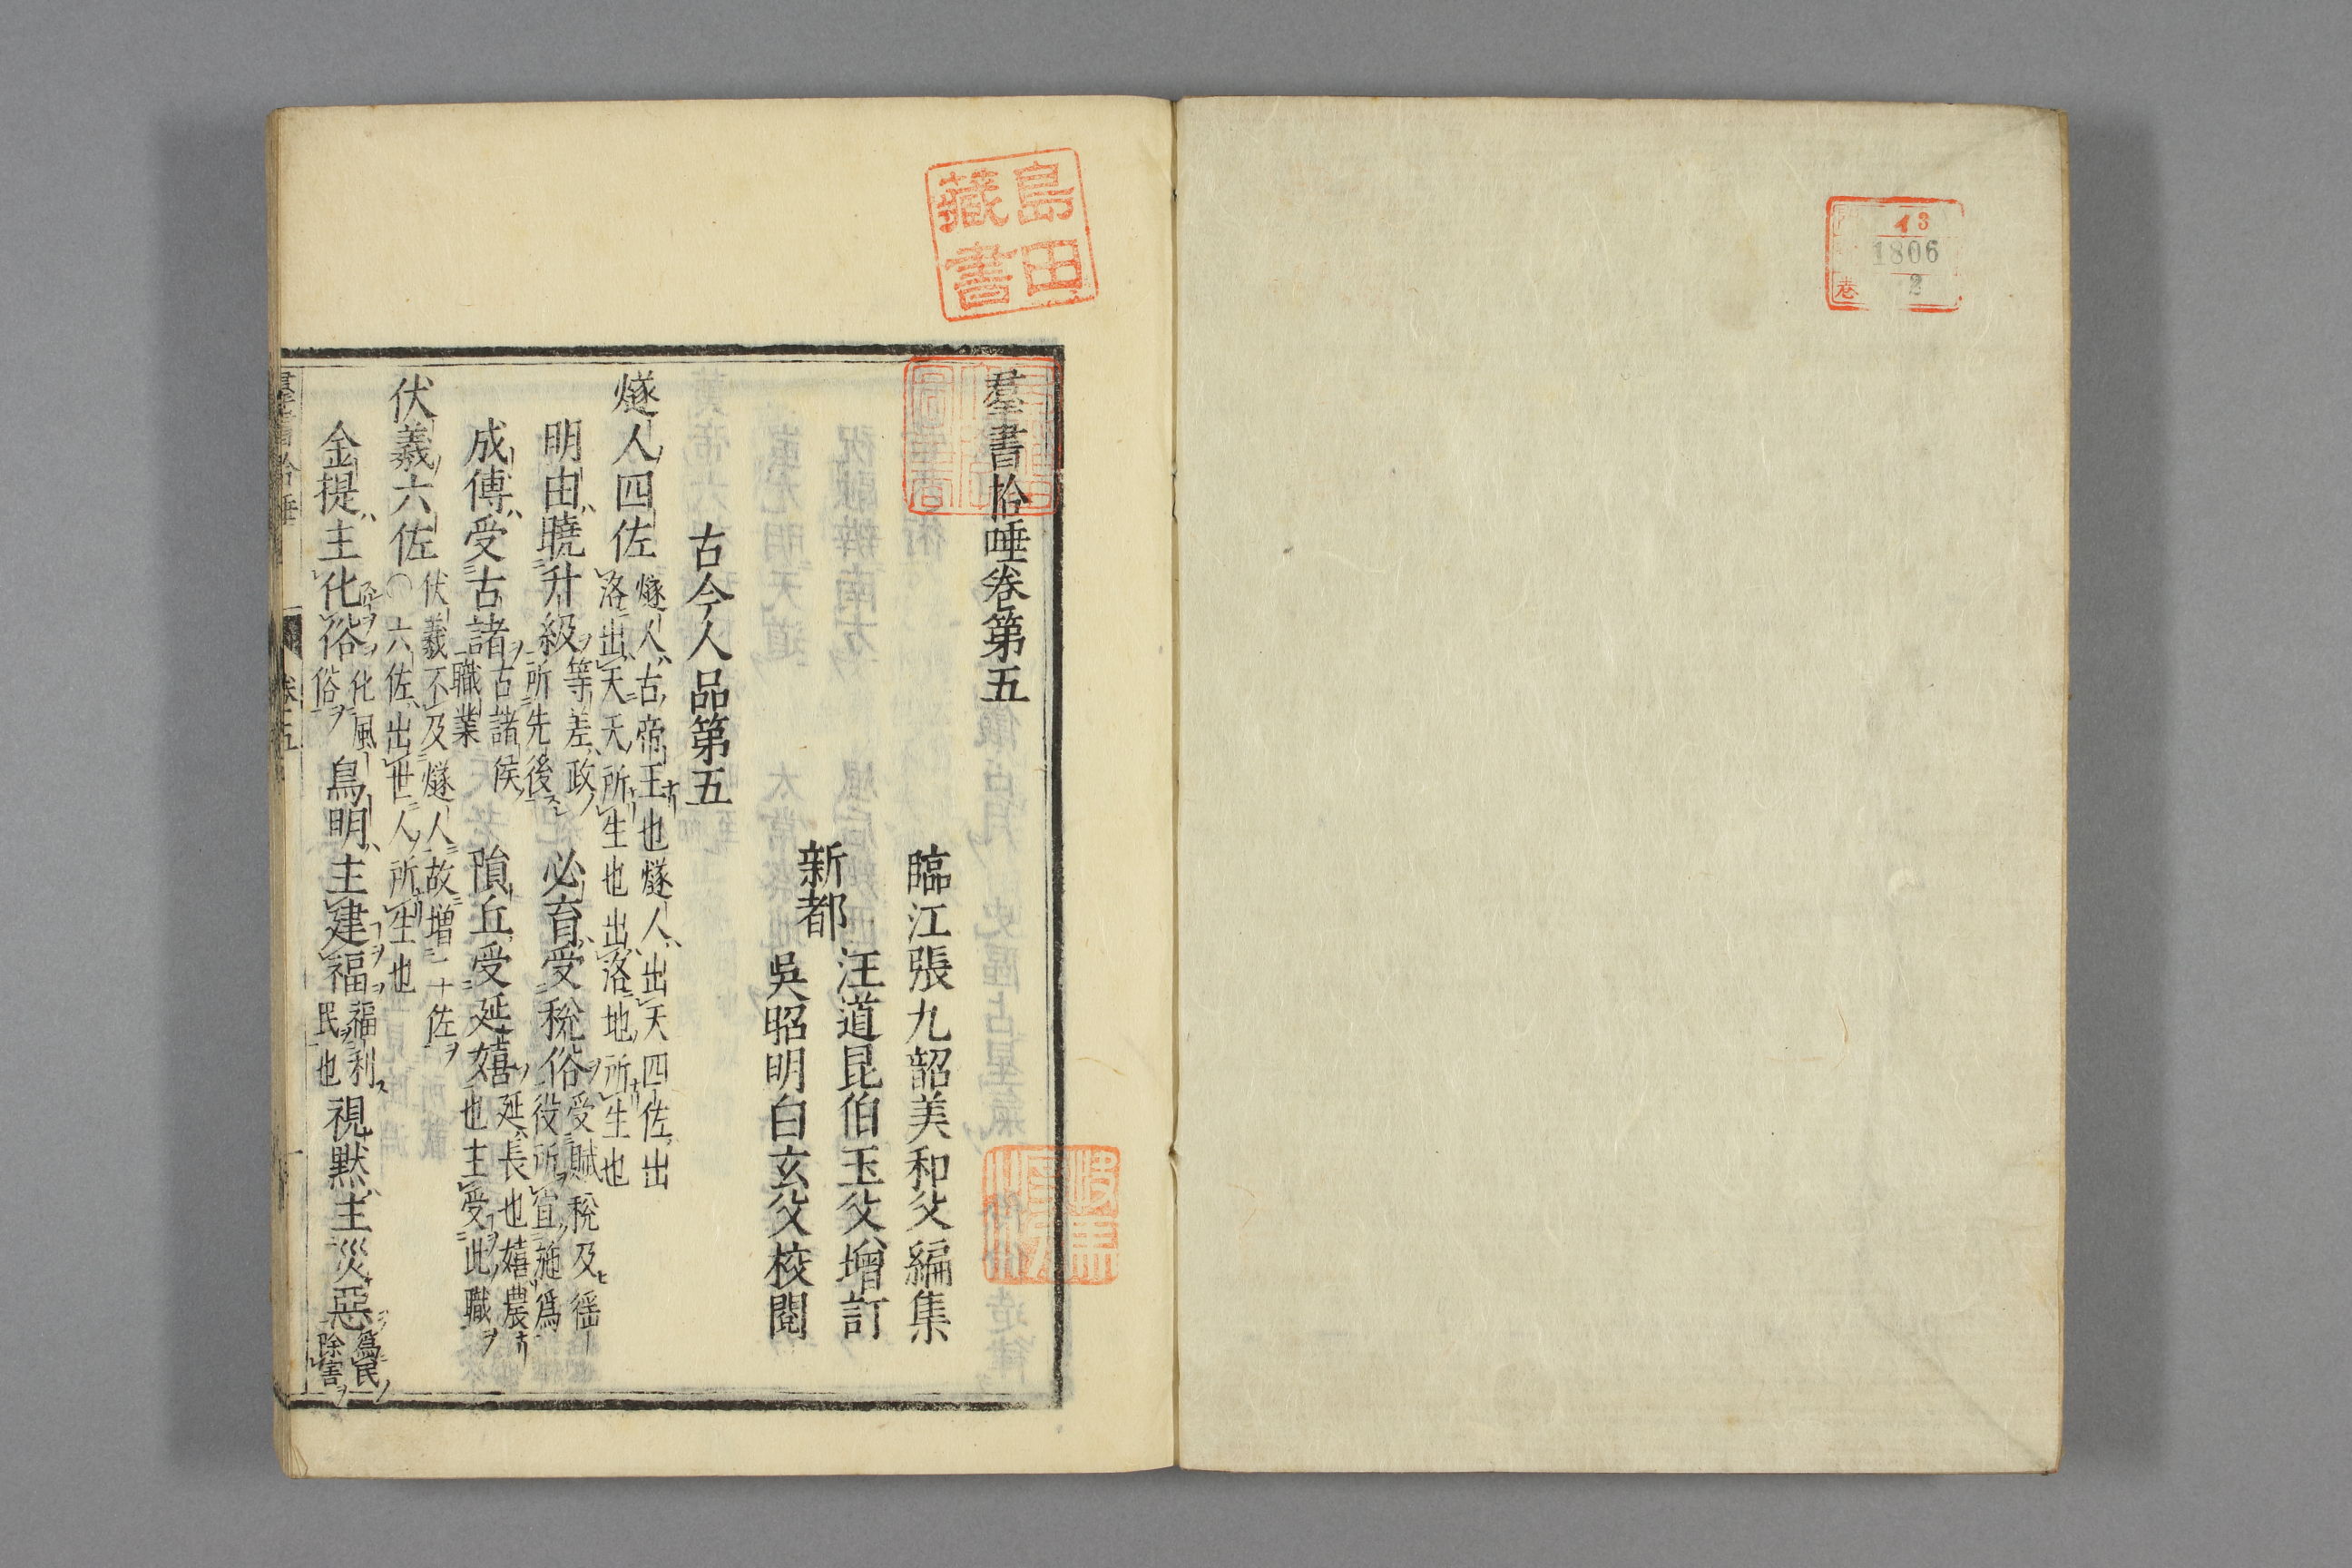 13
1806
2
卷
島田
藏書
羣書拾唾卷第五
臨江張九韶美和父編集
新都
汪道昆伯玉父增訂
吳昭明白玄父校閱
古今人品第五
燧人四佐
燧人古帝王也燧人出天四佐出
洛出天天所生也出洛地所生也
明由曉升級
等差政
所先後
必育受稅俗
受賦稅及徭
役所宜施爲
成傅受古諸
古諸侯
職業
隕丘受延嬉
延長也嬉農
也主受此職
伏羲六佐
伏羲不及燧人故增二十佐
〇六佐出世人所生也
金提主化俗
化風
俗
鳥明主建福
福利
民也
視默主災惡
爲民
除害
卷五
一